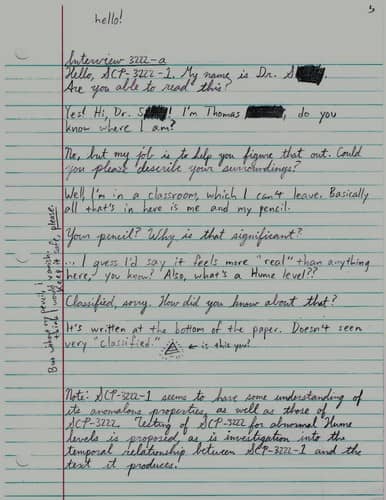 hello!
Interview 3222-a
Hello, SCP-3222-1. My name is Dr. S
Are you able to read this?
Yes! Hi, Dr. S! I'm Thomas , do you
know where I am?
No, but my job is to help you figure that out. Could
you please describe your surroundings?
Well, I'm in a classroom, which I can't leave. Basically
all that's in here is me and my pencil.
Your pencil? Why is that significant?
... I guess I'd say it feels more "real" than anything
here, you know? Also, what's a Hume level??
Classified, sorry. How did you know about that?
It's written at the bottom of the paper. Doesn't seem
very "classified."
← is this you?
Note: SCP-3222-1 seems to have some understanding of
its anomalous properties, as well as those of
SCP-3222. Testing of SCP-3222 for abnormal Hume
levels is proposed, as is investigation into the
temporal relationship between SCP-3222-1 and the
text it produces.
my pencil, I
think I would vanish.
Keep it safe, please.